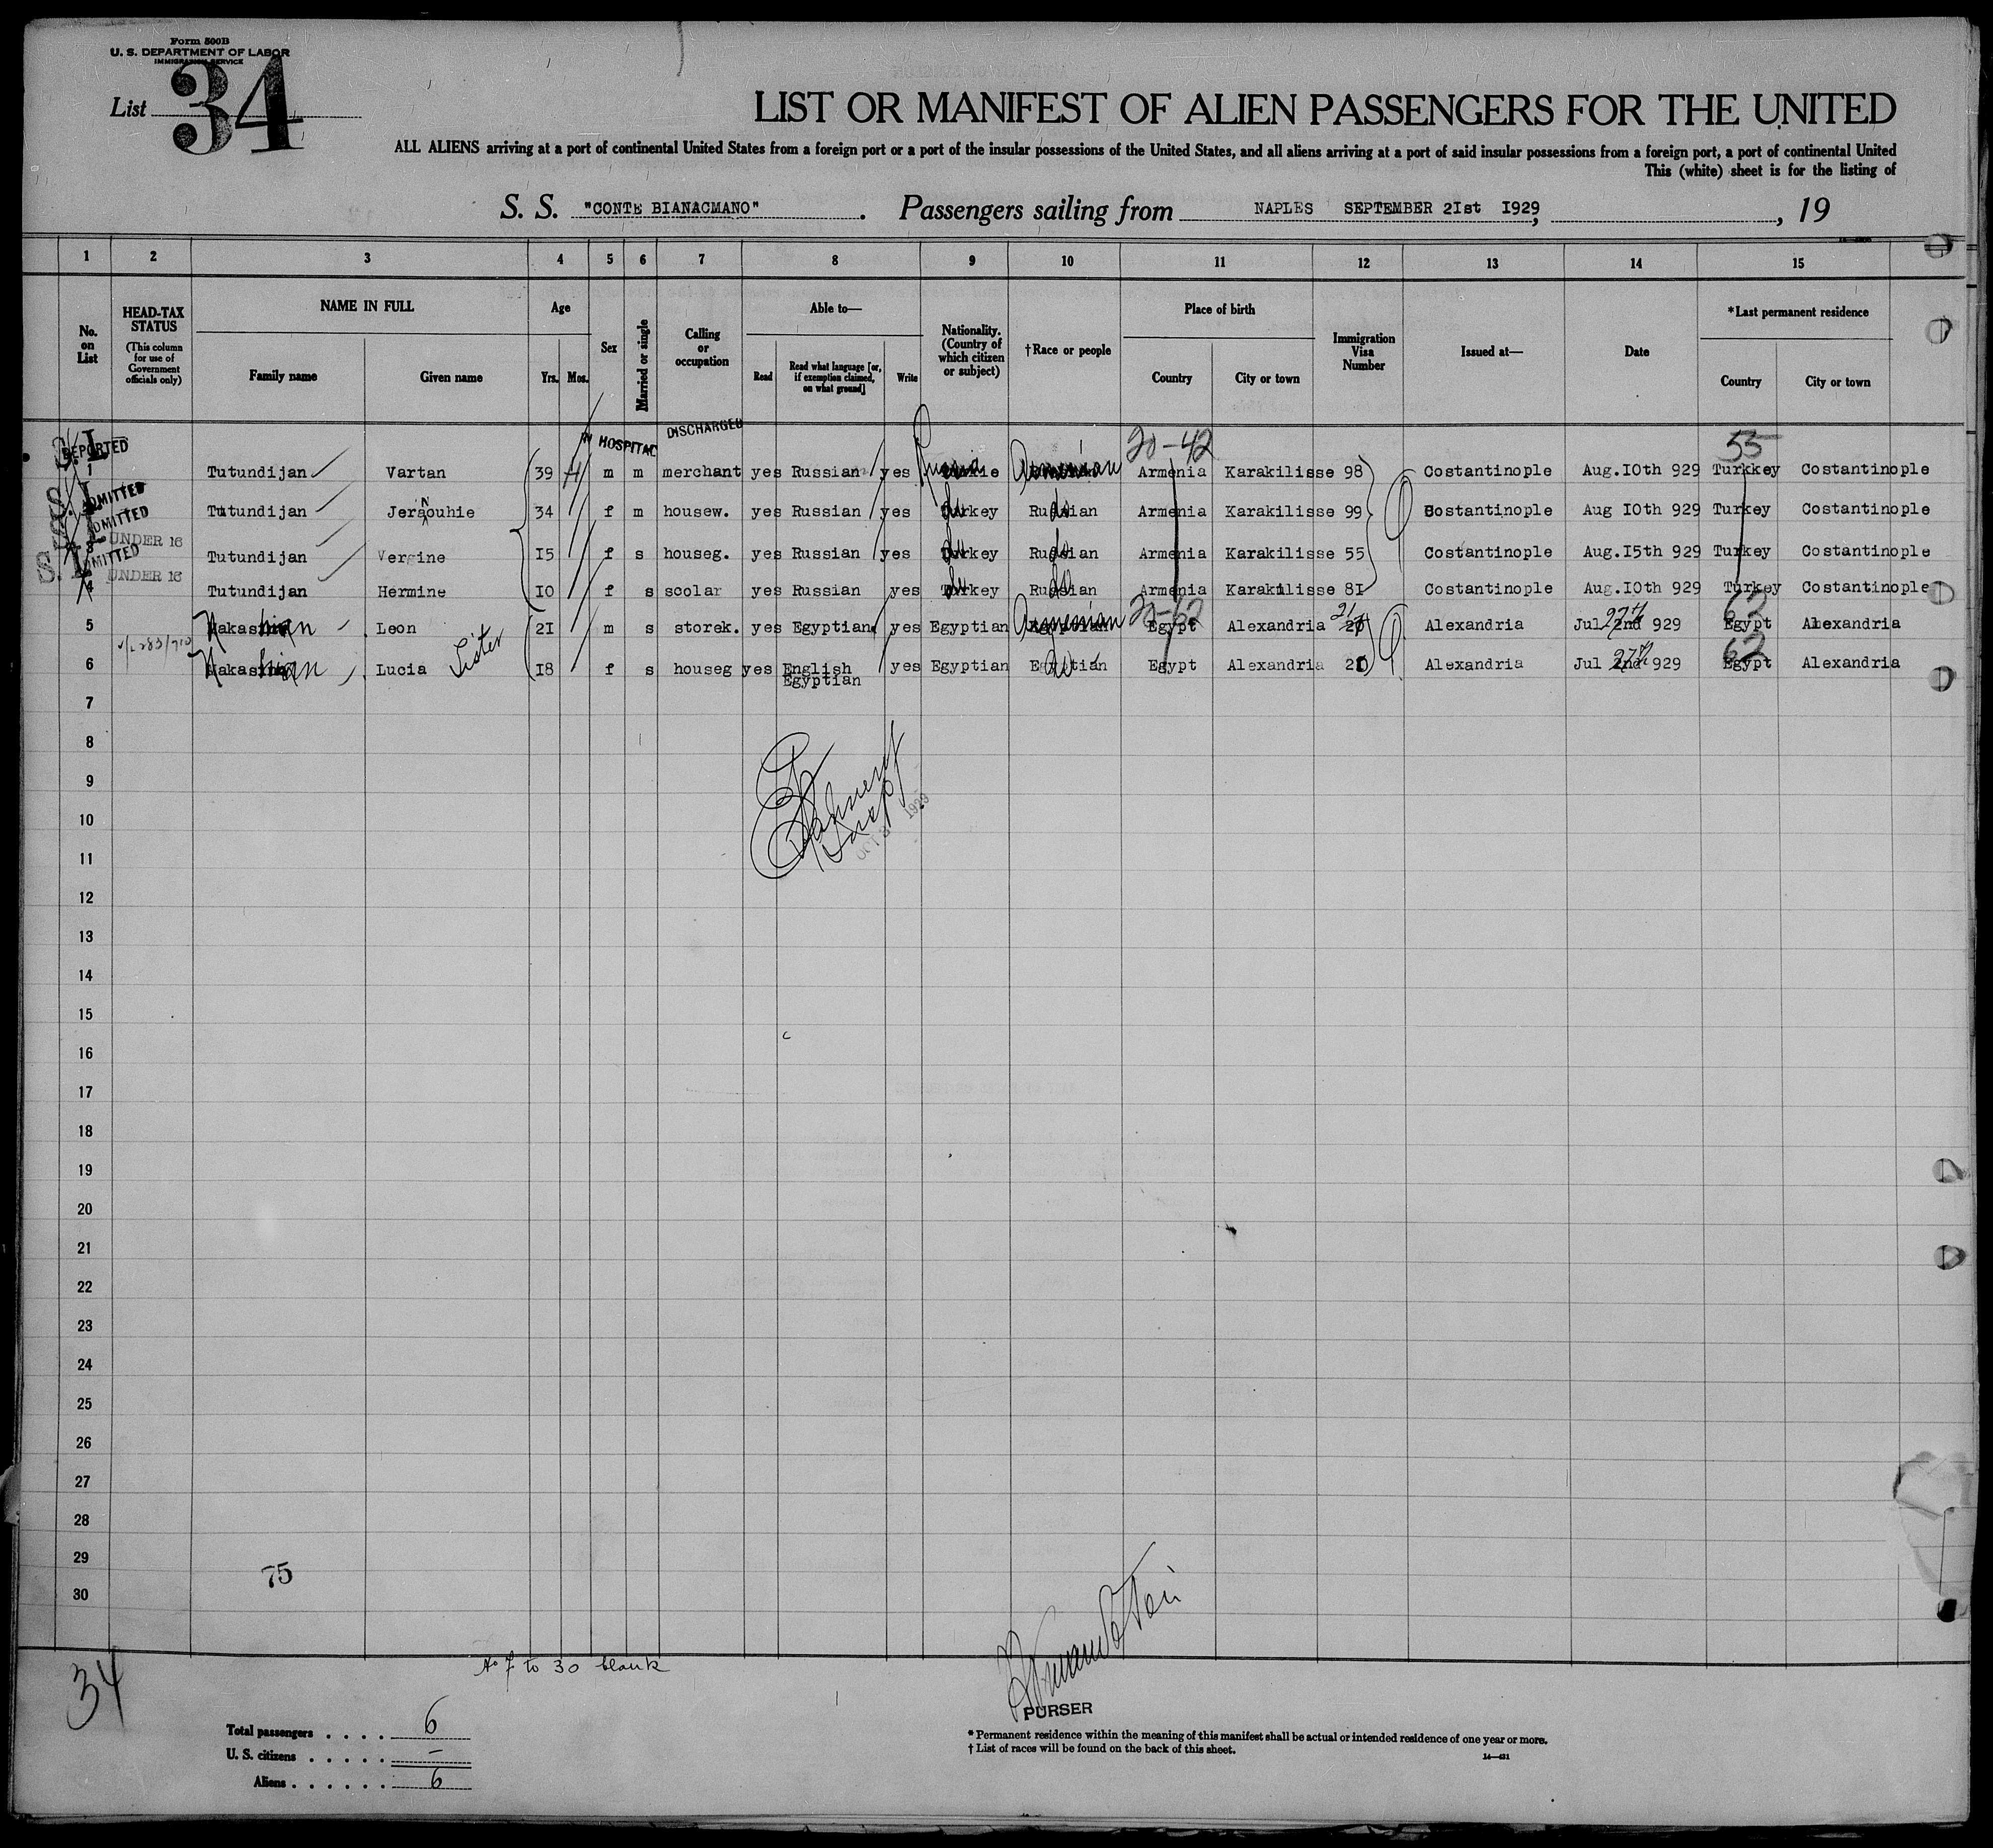 Form 500B
U. S. DEPARTMENT OF LABOR
IMMIGRATION SERVICE
List 34
LIST OR MANIFEST OF ALIEN PASSENGERS FOR THE UNITED
ALL ALIENS arriving at a port of continental United States from a foreign port or a port of the insular possessions of the United States, and all aliens arriving at a port of said insular possessions from a foreign port, a port of continental United
This (white) sheet is for the listing of
S. S. "CONTE BIANACMANO". Passengers sailing from NAPLES SEPTEMBER 2Ist I929, , 19
1 2 3 4 5 6 7 8 9 10 11 12 13 14 15
No. on List
HEAD-TAX STATUS
(This column for use of Government officials only)
NAME IN FULL
Family name
Given name
Age
Yrs. Mos.
Sex
Married or single
Calling or occupation
Able to—
Read
Read what language [or, if exemption claimed, on what ground]
Write
Nationality. (Country of which citizen or subject)
†Race or people
Place of birth
Country
City or town
Immigration Visa Number
Issued at—
Date
*Last permanent residence
Country
City or town
IN HOSPITAL DISCHARGED
20-42 55
DEPORTED
1 Tutundijan Vartan 39 m m merchant yes Russian yes Russia Armenian Armenia Karakilisse 98 Costantinople Aug.IOth 929 Turkkey Costantinople
S.I. ADMITTED
Tutundijan Jeraouhie 34 f m housew. yes Russian yes Turkey do Armenia Karakilisse 99 Costantinople Aug IOth 929 Turkey Costantinople
ADMITTED
UNDER 16
3 Tutundijan Vergine I5 f s houseg. yes Russian yes Turkey do Armenia Karakilisse 55 Costantinople Aug.I5th 929 Turkey Costantinople
S.I. ADMITTED
UNDER 16
4 Tutundijan Hermine IO f s scolar yes Russian yes Turkey do Armenia Karakilisse 8I Costantinople Aug.IOth 929 Turkey Costantinople
20-62 62
5 Nakashian Leon 2I m s storek. yes Egyptian yes Egyptian Armenian Egypt Alexandria 21 Alexandria Jul 27th 929 Egypt Alexandria
62
6 Nakashian Lucia Sister I8 f s houseg yes English yes Egyptian do Egypt Alexandria Alexandria Jul 27th 929 Egypt Alexandria
Egyptian
7
8
9
10
OCT 1929
11
12
13
14
15
16
17
18
19
20
21
22
23
24
25
26
27
28
29
75
30
34
No 7 to 30 blank
PURSER
Total passengers . . . . 6
U. S. citizens . . . . . –
Aliens . . . . . . 6
* Permanent residence within the meaning of this manifest shall be actual or intended residence of one year or more.
† List of races will be found on the back of this sheet.
14—421